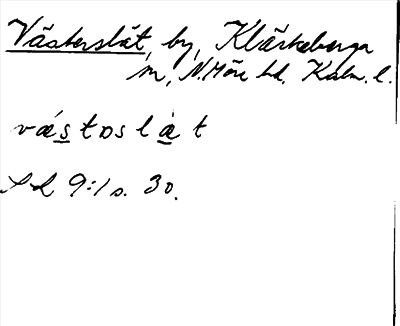 Västerslät, by, Kläckeberga
m, N. Möre hd. Kalm. l.
västɒslàt
SL 9:1 s. 30.